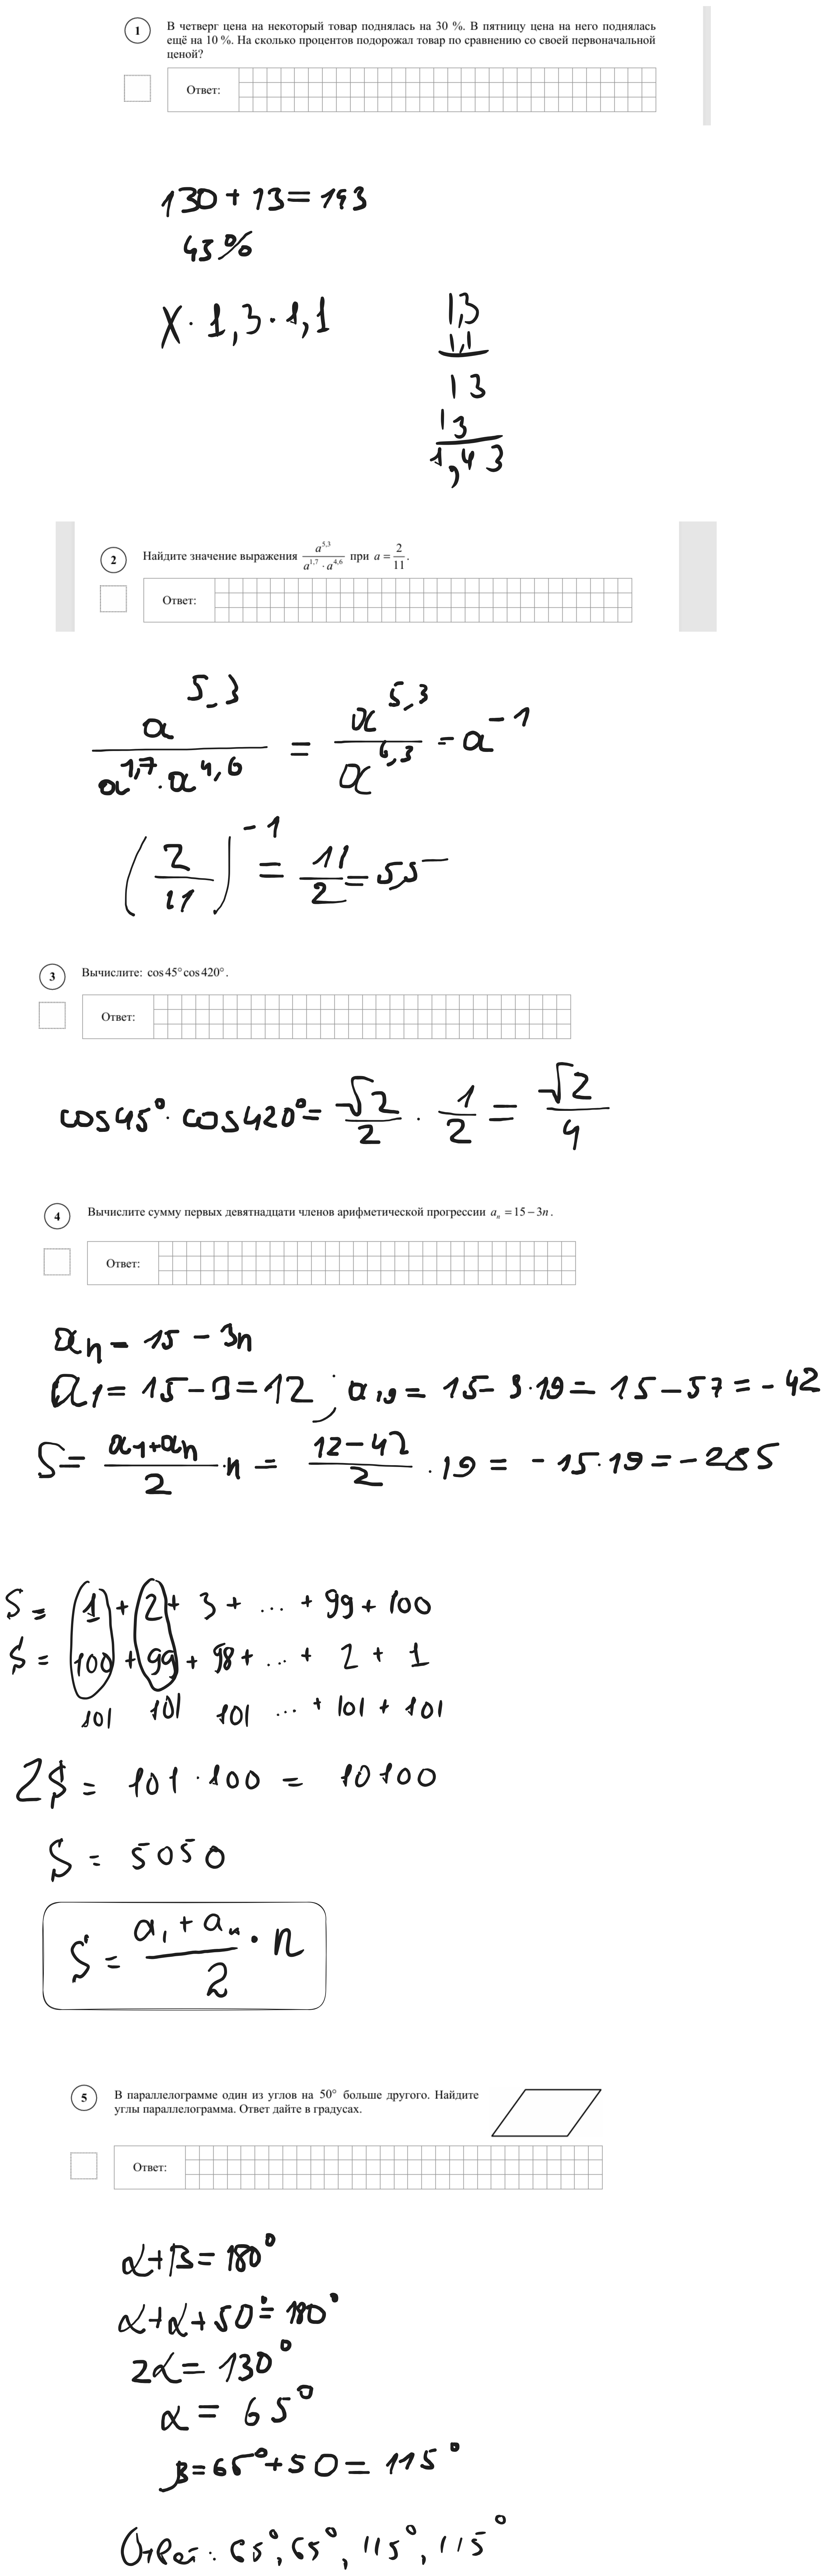 1 В четверг цена на некоторый товар поднялась на 30 %. В пятницу цена на него поднялась
ещё на 10 %. На сколько процентов подорожал товар по сравнению со своей первоначальной
ценой?
Ответ:
130 + 13 = 143
43%
X · 1,3 · 1,1
1,3
1,1
13
13
1,43
2 Найдите значение выражения a^5,3 / (a^1,7 · a^4,6) при a = 2/11.
Ответ:
a^5,3 / (a^1,7 · a^4,6) = a^5,3 / a^6,3 = a^-1
(2/11)^-1 = 11/2 = 5,5
3 Вычислите: cos45°cos420°.
Ответ:
cos45° · cos420° = √2/2 · 1/2 = √2/4
4 Вычислите сумму первых девятнадцати членов арифметической прогрессии aₙ = 15 − 3n.
Ответ:
aₙ = 15 − 3n
a₁ = 15 − 3 = 12 ; a₁₉ = 15 − 3·19 = 15 − 57 = −42
S = (a₁+aₙ)/2 · n = (12−42)/2 · 19 = −15·19 = −285
S = 1 + 2 + 3 + ... + 99 + 100
S = 100 + 99 + 98 + ... + 2 + 1
101 101 101 ... + 101 + 101
2S = 101 · 100 = 10100
S = 5050
S = (a₁ + aₙ)/2 · n
5 В параллелограмме один из углов на 50° больше другого. Найдите
углы параллелограмма. Ответ дайте в градусах.
Ответ:
α+β=180°
α+α+50°=180°
2α=130°
α = 65°
β=65°+50=115°
Ответ: 65°, 65°, 115°, 115°